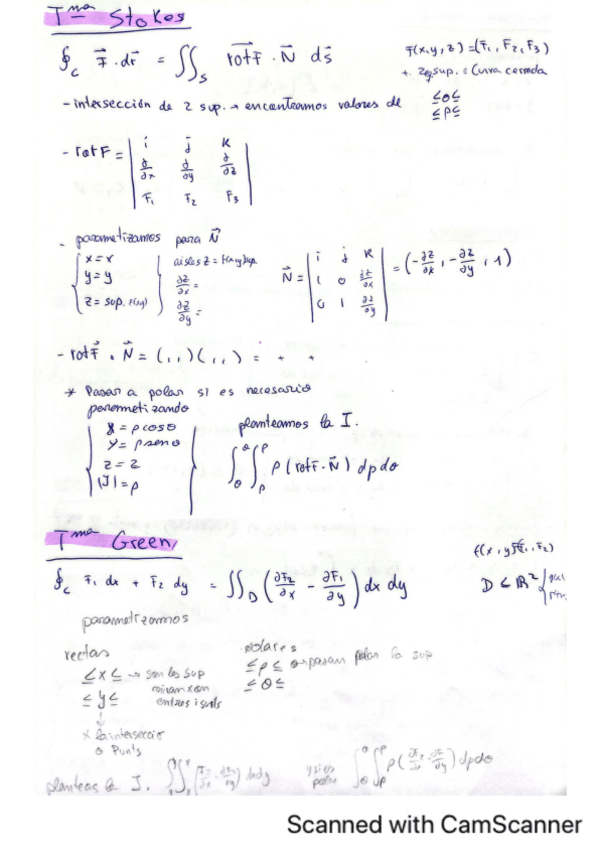 Tma Stokes
∮c F⃗ · dr⃗ = ∬s rotF⃗ · N⃗ ds⃗
F(x,y,z) = (F₁, F₂, F₃)
+ 2 sup. = Curva cerrada
- intersección de 2 sup. → encontramos valores de ≤θ≤
≤ρ≤
- rotF = | i j K
∂/∂x ∂/∂y ∂/∂z
F₁ F₂ F₃ |
- parametizamos para N⃗
{ x = x
y = y
z = sup. f(xy)
aisles z = f(xy) sup.
∂z/∂x =
∂z/∂y =
N⃗ = | i j K
1 0 ∂z/∂x
0 1 ∂z/∂y | = (-∂z/∂x, -∂z/∂y, 1)
- rotF⃗ · N⃗ = ( , , ) ( , , ) = + +
* Pasar a polar si es necesario
parametizando
x = ρ cosθ
y = ρ senθ
z = z
|J| = ρ
planteamos la I.
∫θ^θ ∫ρ^ρ ρ (rotF · N⃗) dρ dθ
Tma Green
f(x,y)=(F₁, F₂)
∮c F₁ dx + F₂ dy = ∬D (∂F₂/∂x - ∂F₁/∂y) dx dy
D ⊂ ℝ²
parametrizamos
rectas
≤x≤ → son les sup
≤y≤
x la interseccio
o Punts
polares
≤ρ≤ → pasan polar la sup
≤θ≤
planteas la I. ∬ (∂F₂/∂x - ∂F₁/∂y) dxdy
y si es polar ∫θ^θ ∫ρ^ρ ρ (∂F₂/∂x - ∂F₁/∂y) dρdθ
Scanned with CamScanner